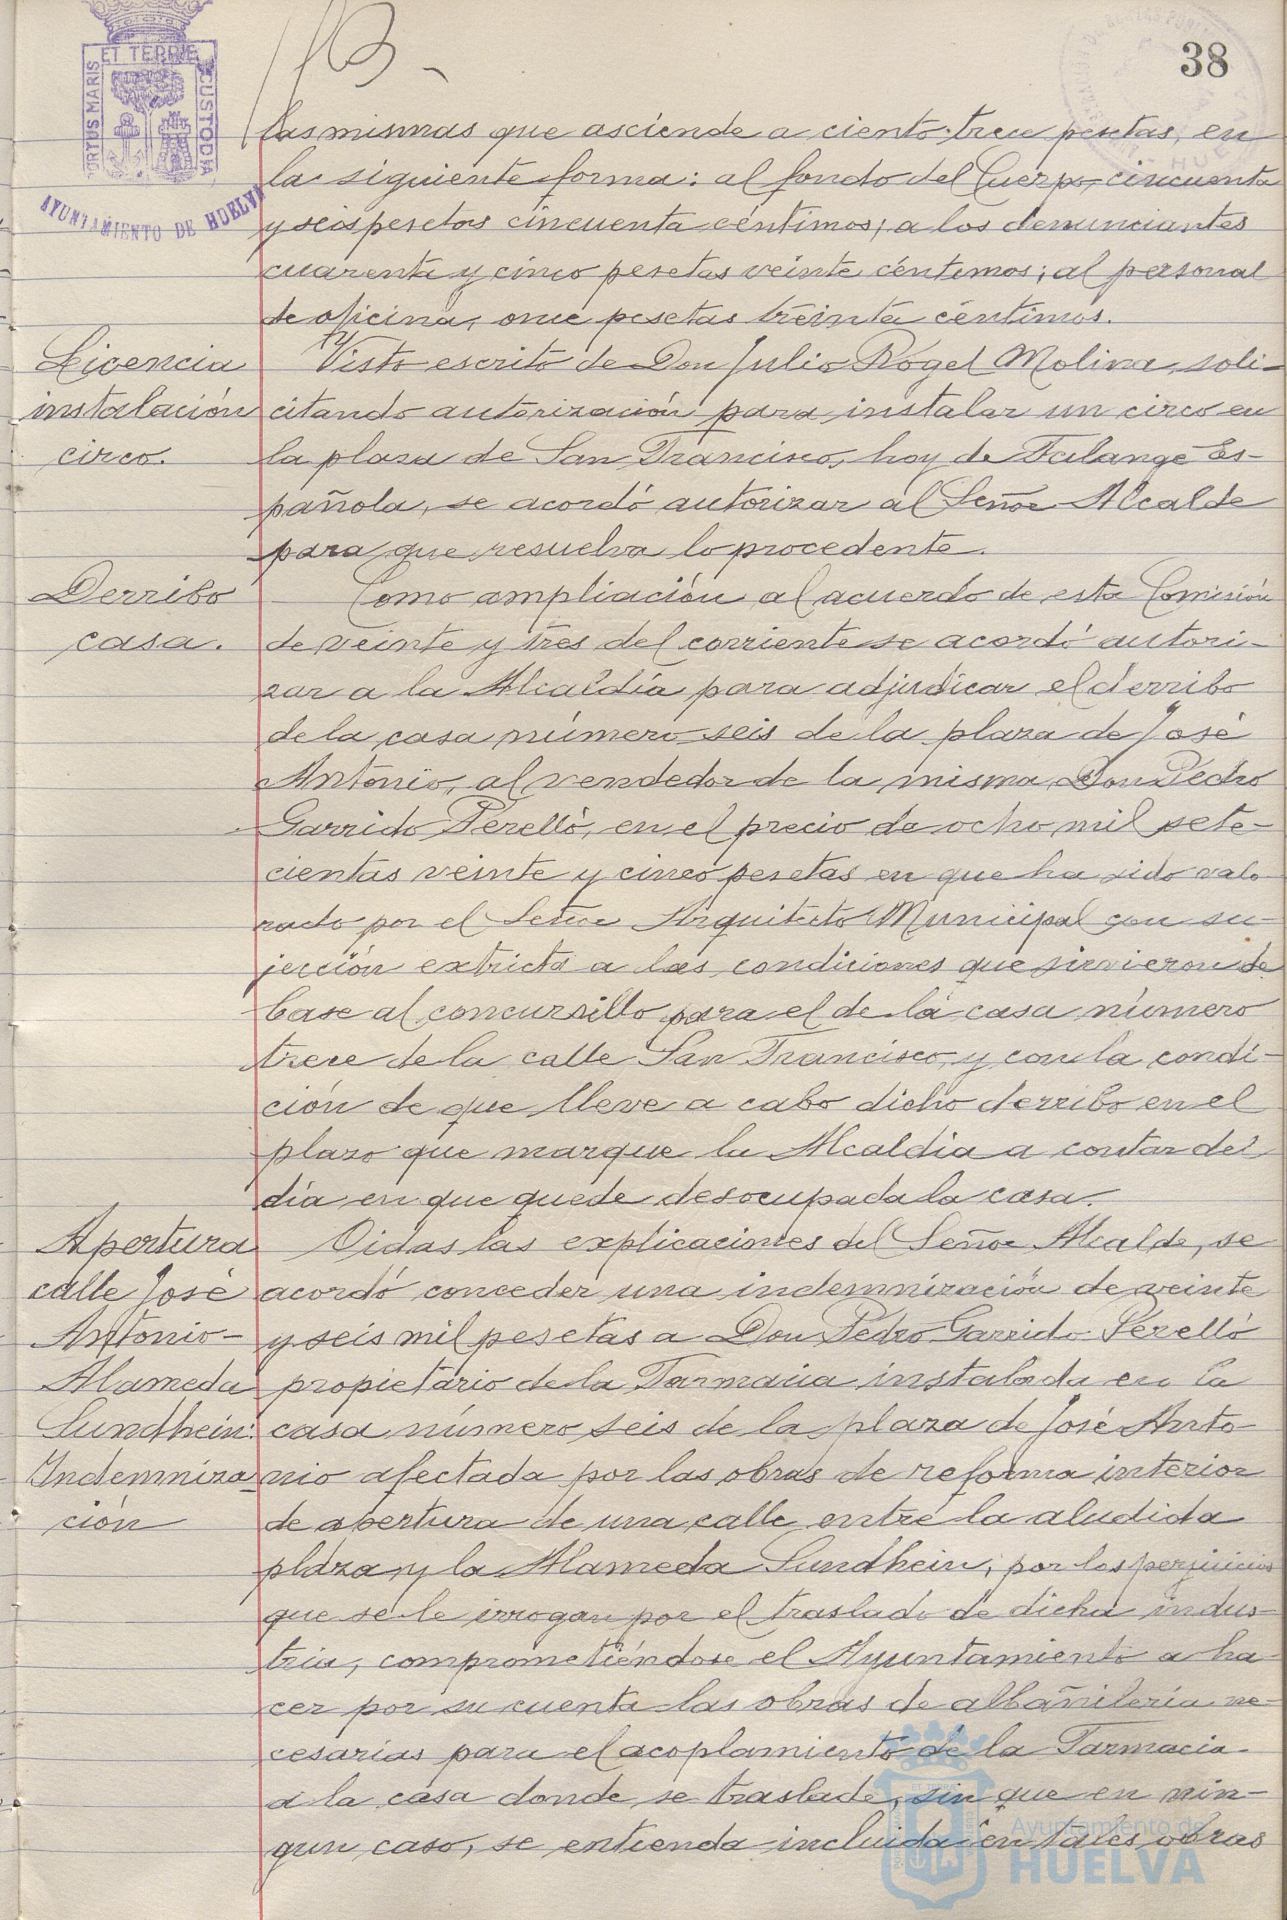 38
ET TERRE
PORTUS MARIS
CUSTODIA
AYUNTAMIENTO DE HUELVA
las mismas que asciende a ciento trece pesetas, en
la siguiente forma: al fondo del Cuerpo, cincuenta
y seis pesetas cincuenta céntimos; a los denunciantes
cuarenta y cinco pesetas veinte céntimos; al personal
de oficina, once pesetas treinta céntimos.
Licencia
instalación
circo.
Visto escrito de Don Julio Rogel Molina, soli-
citando autorización para instalar un circo en
la plaza de San Francisco, hoy de Falange Es-
pañola, se acordó autorizar al Señor Alcalde
para que resuelva lo procedente.
Derribo
casa.
Como ampliación al acuerdo de esta Comisión
de veinte y tres del corriente se acordó autori-
zar a la Alcaldía para adjudicar el derribo
de la casa número seis de la plaza de José
Antonio, al vendedor de la misma Don Pedro
Garrido Perelló, en el precio de ocho mil sete-
cientas veinte y cinco pesetas en que ha sido valo
rado por el Señor Arquitecto Municipal con su-
jección extricta a las condiciones que sirvieron de
base al concursillo para el de la casa número
trece de la calle San Francisco, y con la condi-
ción de que lleve a cabo dicho derribo en el
plazo que marque la Alcaldia a contar del
día en que quede desocupada la casa.
Apertura
calle José
Antonio-
Alameda
Sundhein:
Indemniza
ción
Oidas las explicaciones del Señor Alcalde, se
acordó conceder una indemnización de veinte
y seis mil pesetas a Don Pedro Garrido Perelló
propietario de la Farmacia instalada en la
casa número seis de la plaza de José Anto-
nio afectada por las obras de reforma interior
de apertura de una calle entre la aludida
plaza y la Alameda Sundhein, por los perjuicios
que se le irrogan por el traslado de dicha indus-
tria, comprometiéndose el Ayuntamiento a ha-
cer por su cuenta las obras de albañilería ne-
cesarias para el acoplamiento de la Farmacia
a la casa donde se traslade, sin que en nin-
gun caso, se entienda incluida en tales obras
Ayuntamiento de
HUELVA